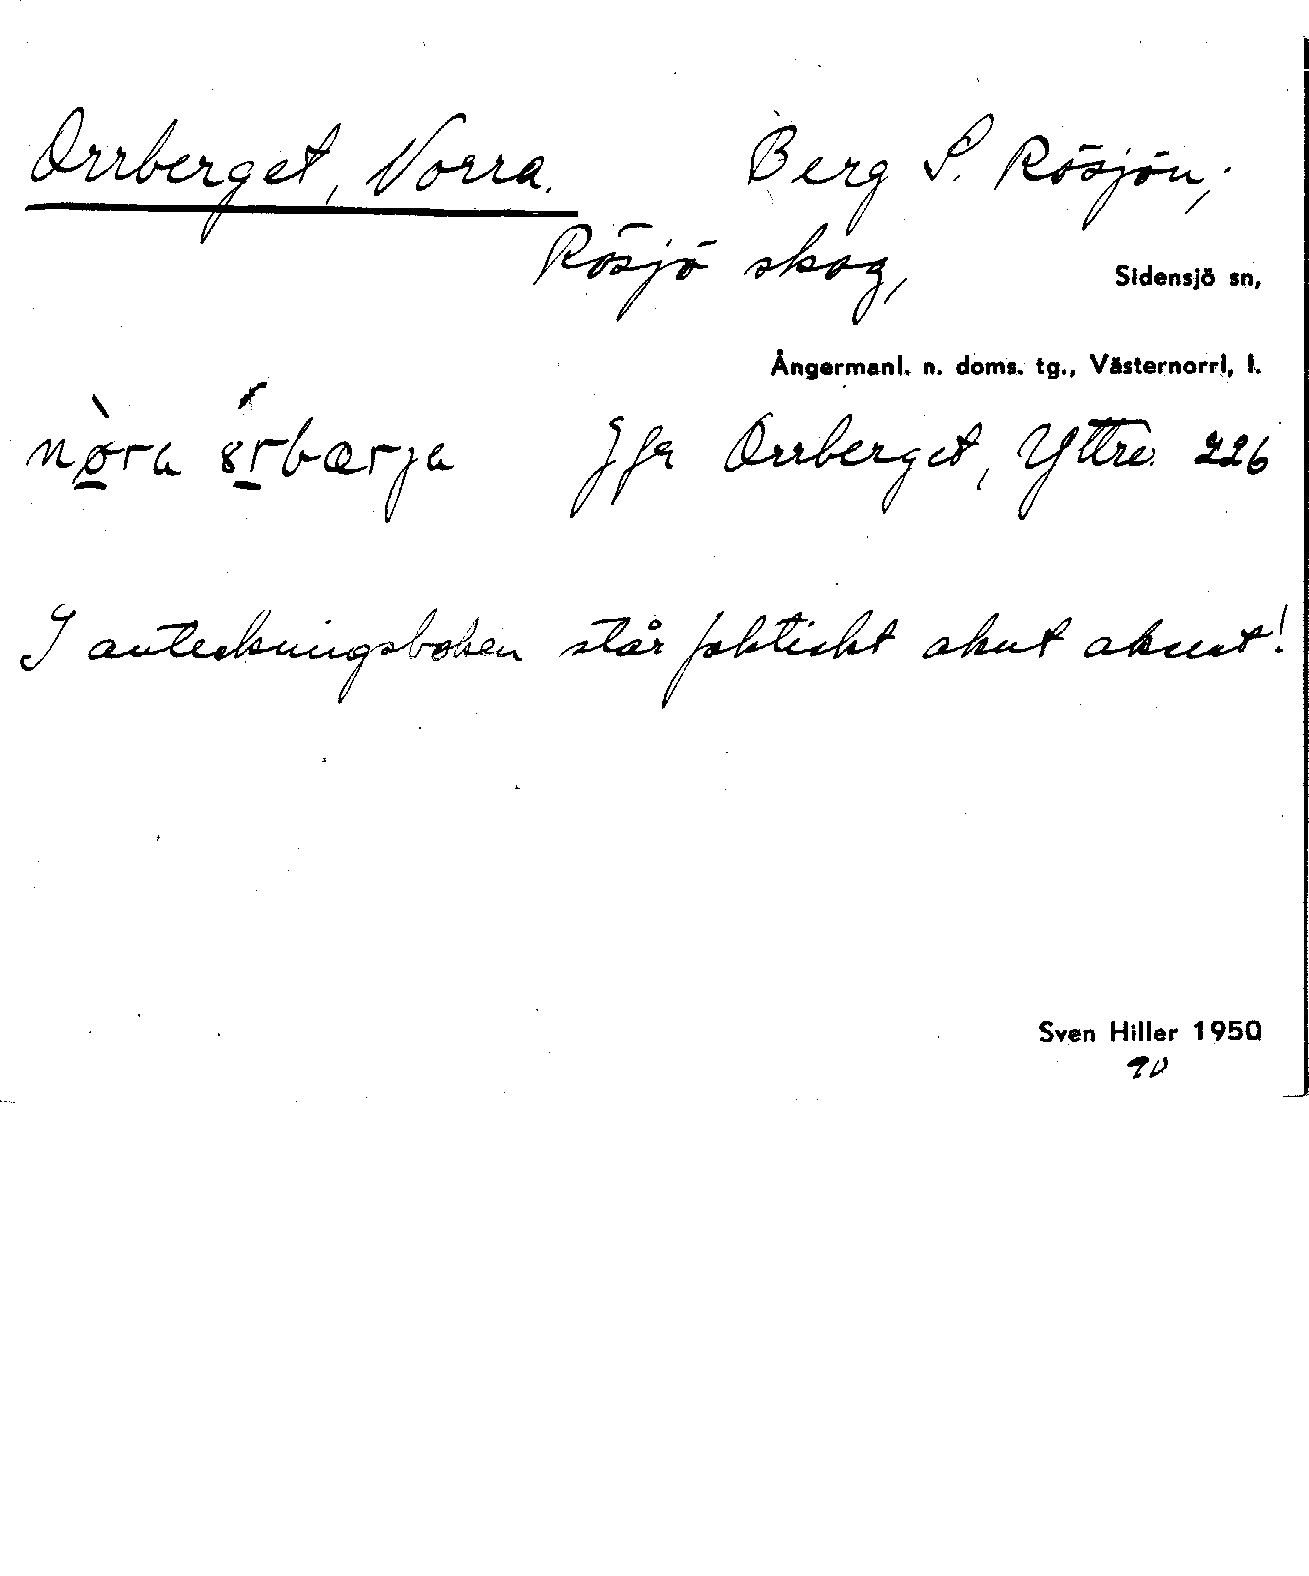 Orrberget, Norra. Berg S. Rösjön,
Rösjö skog,
Sidensjö sn,
Ångermanl. n. doms. tg., Västernorrl, l.
Jfr Orrberget, Yttre. 226
I anteckningsboken står faktiskt akut aksent!
Sven Hiller 1950
90